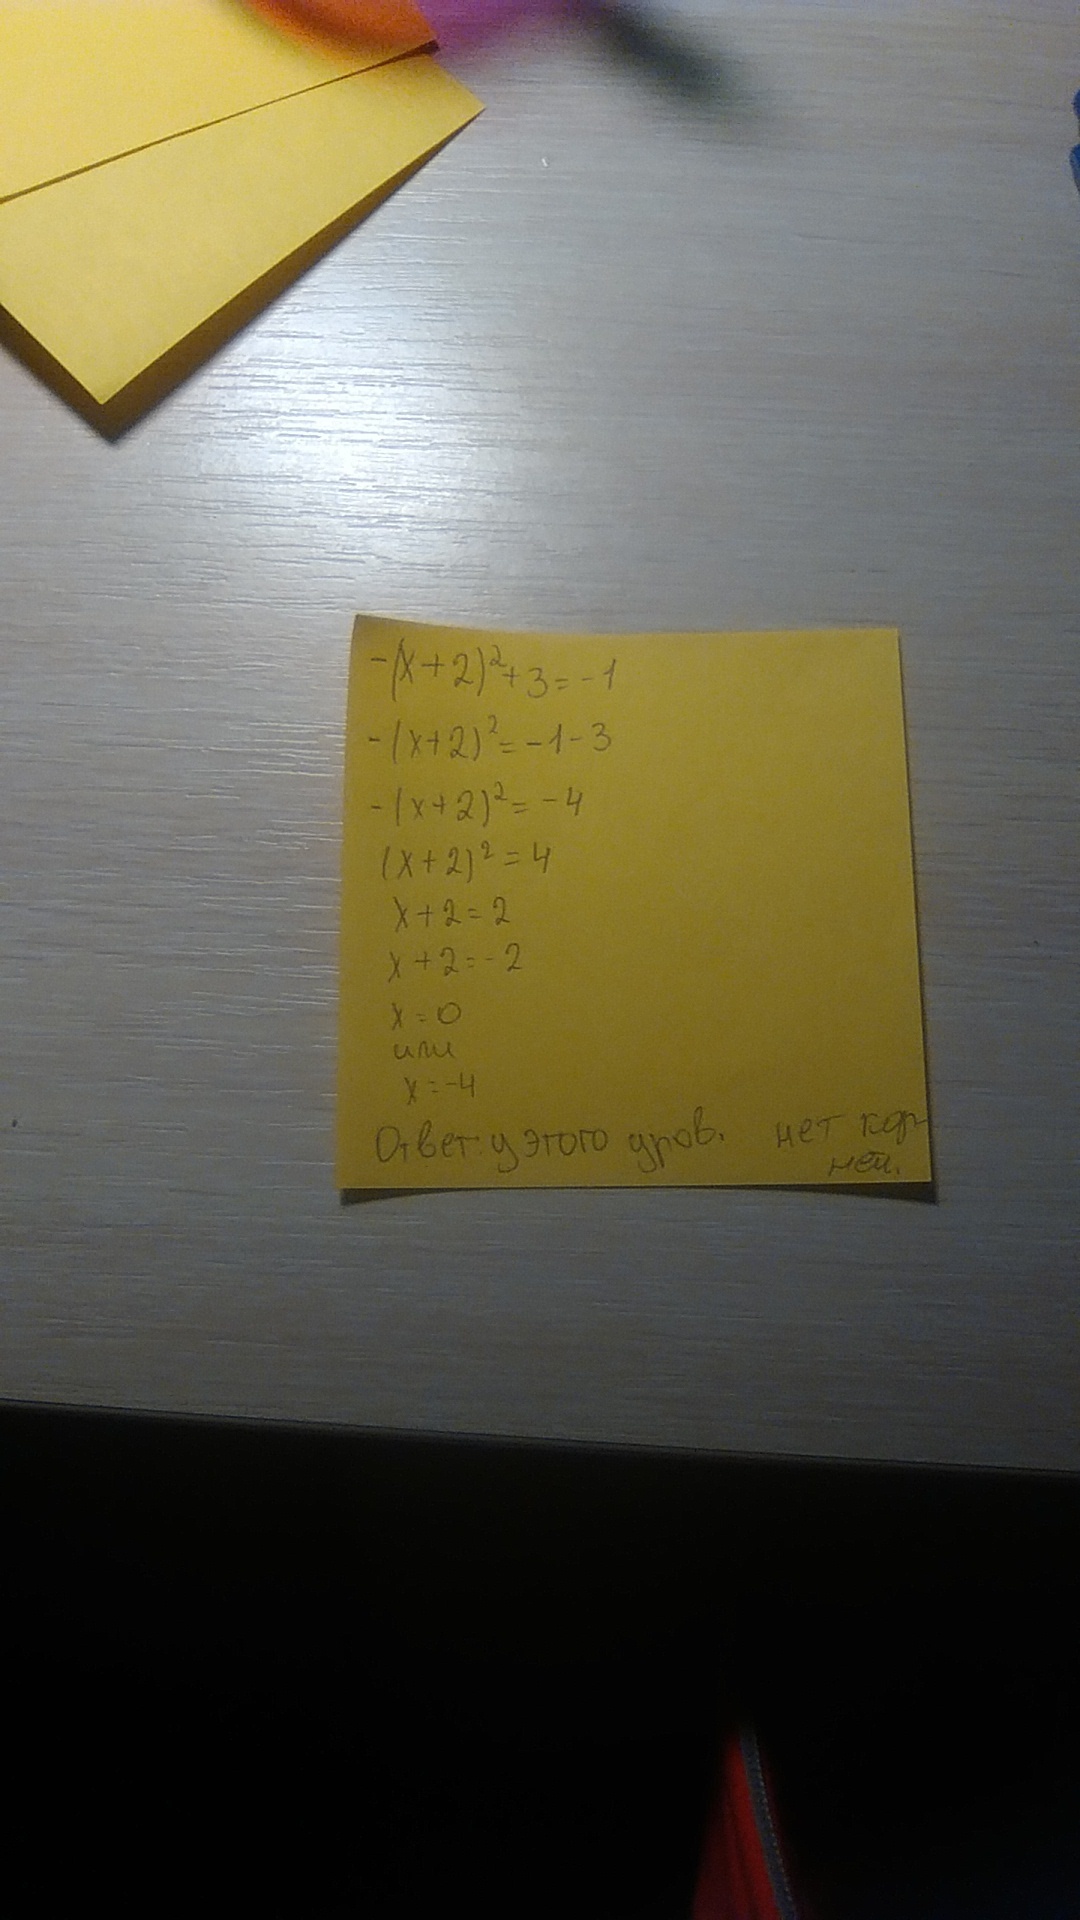 -(x+2)²+3=-1
-(x+2)²=-1-3
-(x+2)²=-4
(x+2)²=4
x+2=2
x+2=-2
x=0
или
x=-4
Ответ: у этого уров. нет кор-
ней.